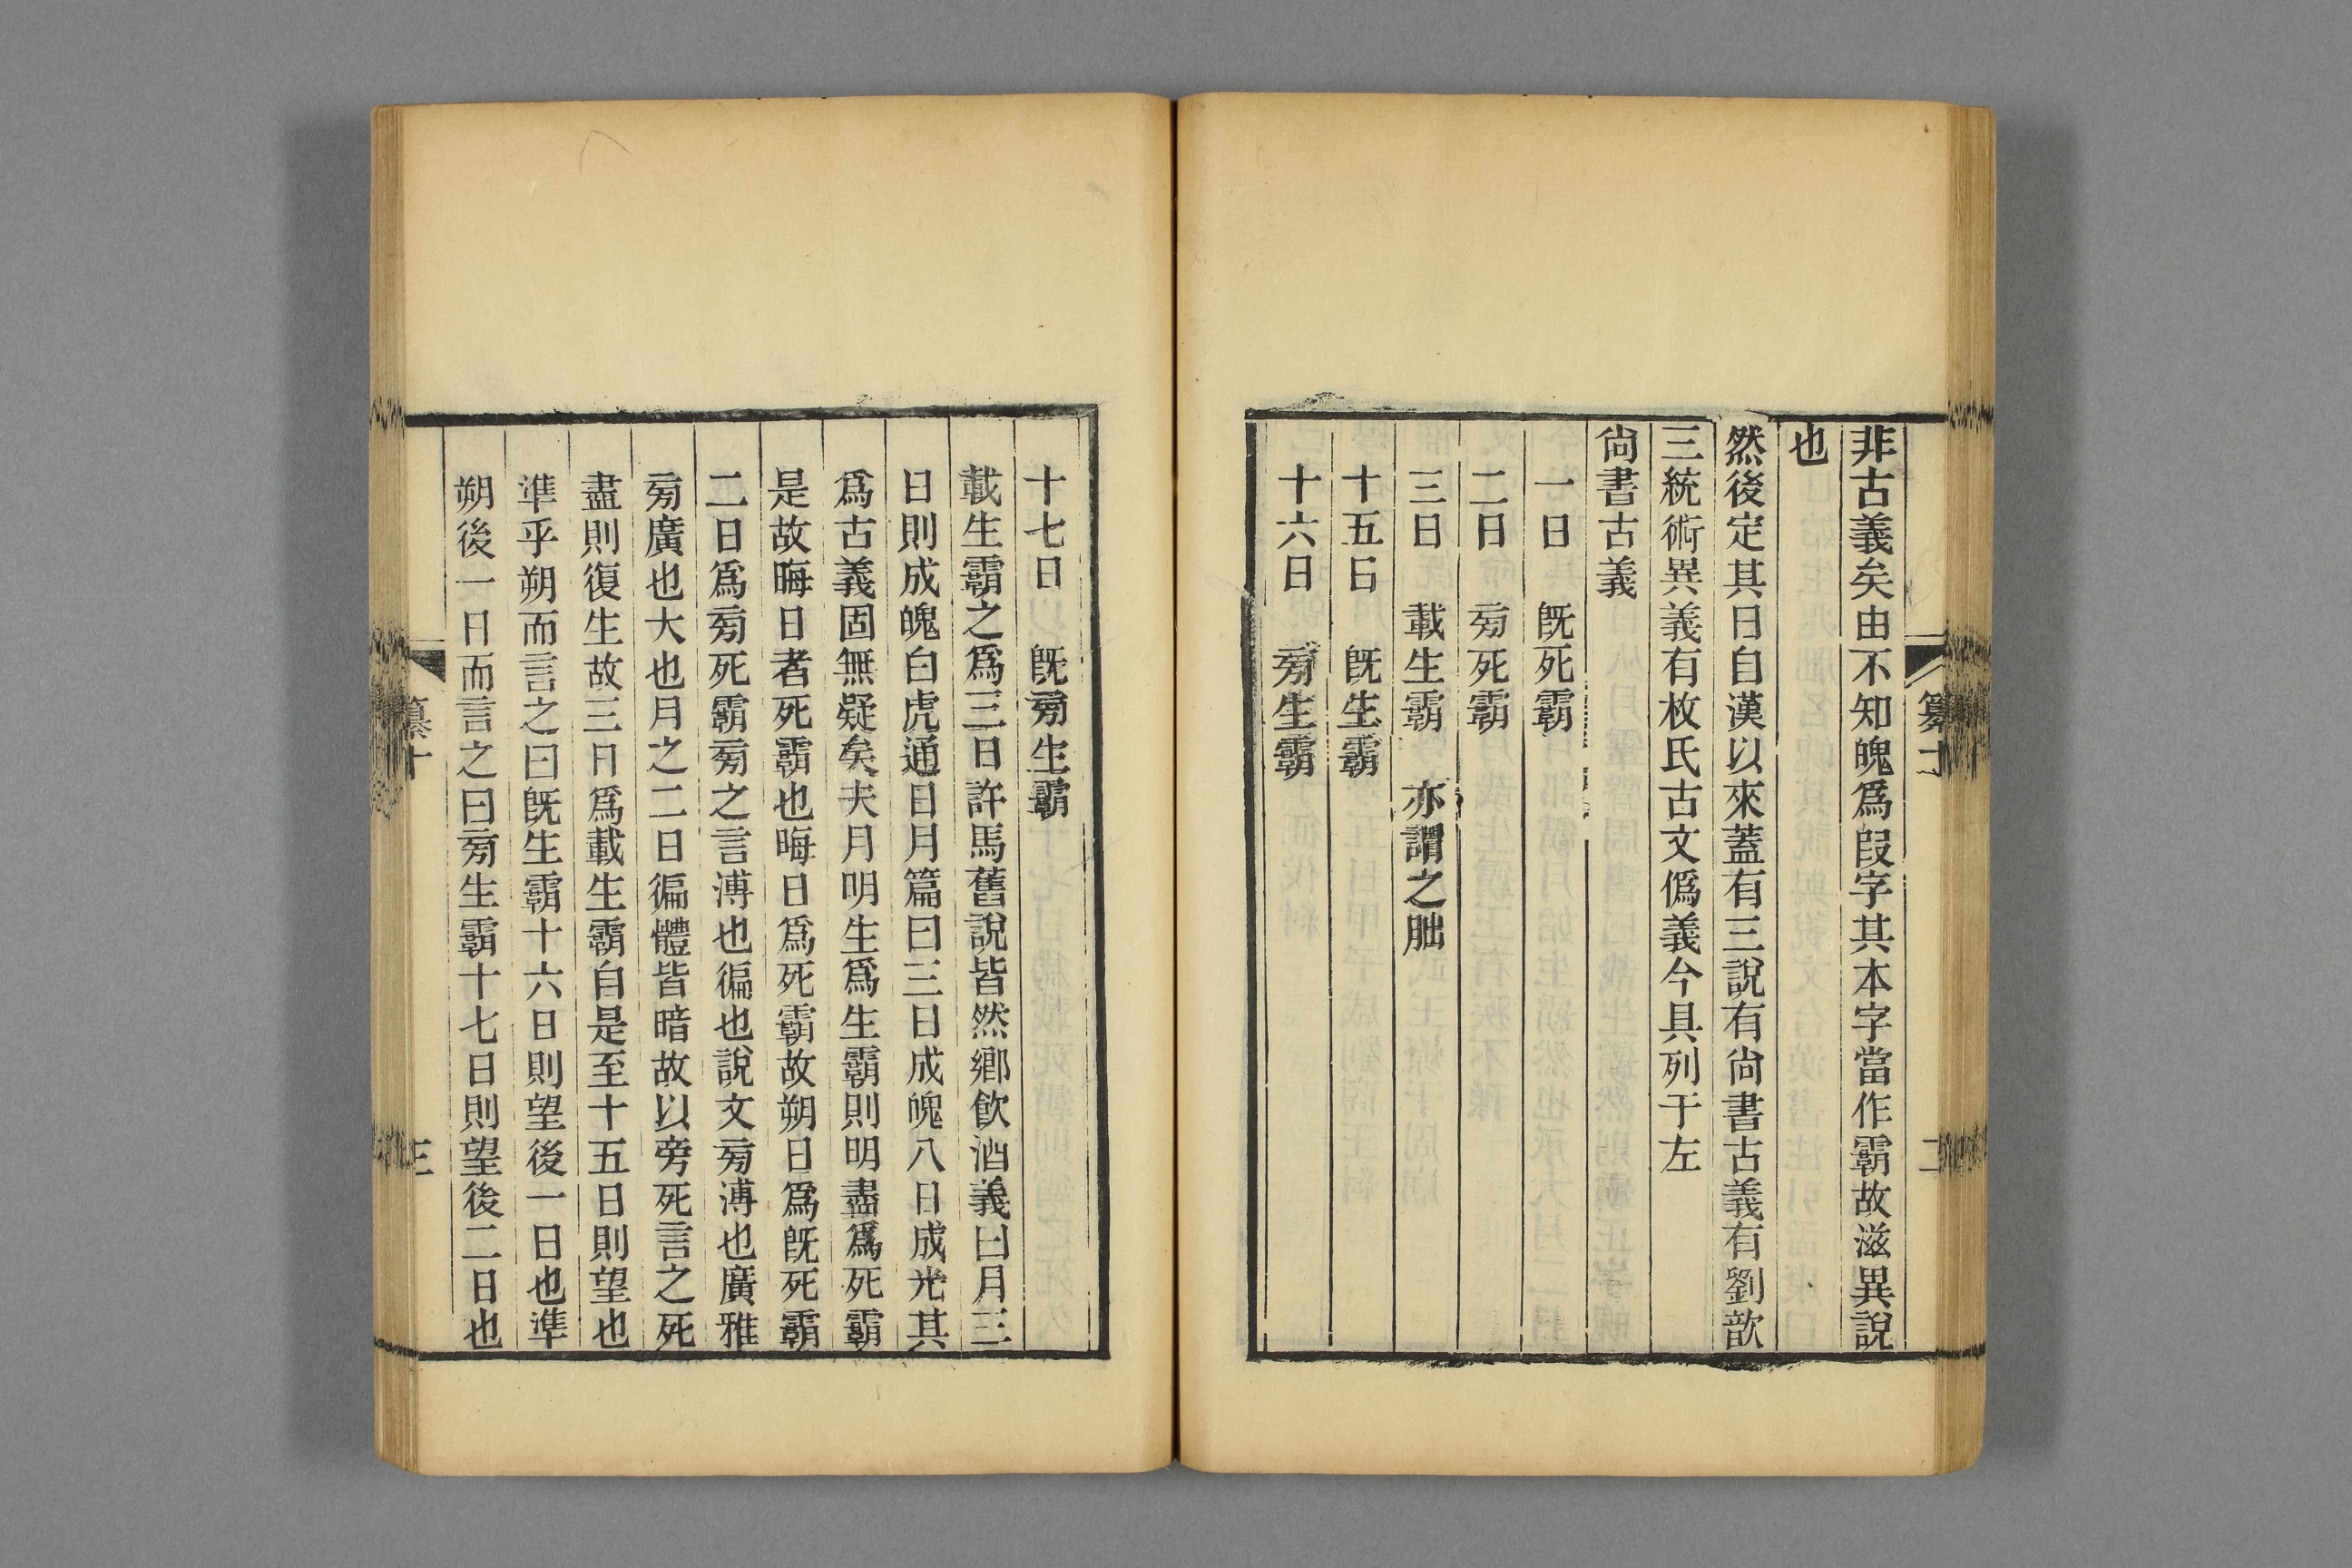 非古義矣由不知魄爲叚字其本字當作霸故滋異說
也
然後定其日自漢以來蓋有三說有尙書古義有劉歆
三統術異義有枚氏古文僞義今具列于左
尙書古義
一日 旣死霸
二日 㫄死霸
三日 載生霸 亦謂之朏
十五日 旣生霸
十六日 㫄生霸
纂十
二
十七日 旣㫄生霸
載生霸之爲三日許馬舊說皆然鄕飮酒義曰月三
日則成魄白虎通日月篇曰三日成魄八日成光其
爲古義固無疑矣夫月明生爲生霸則明盡爲死霸
是故晦日者死霸也晦日爲死霸故朔日爲旣死霸
二日爲㫄死霸㫄之言溥也徧也說文㫄溥也廣雅
㫄廣也大也月之二日徧體皆暗故以旁死言之死
盡則復生故三日爲載生霸自是至十五日則望也
準乎朔而言之曰旣生霸十六日則望後一日也準
朔後一日而言之曰㫄生霸十七日則望後二日也
纂十
三